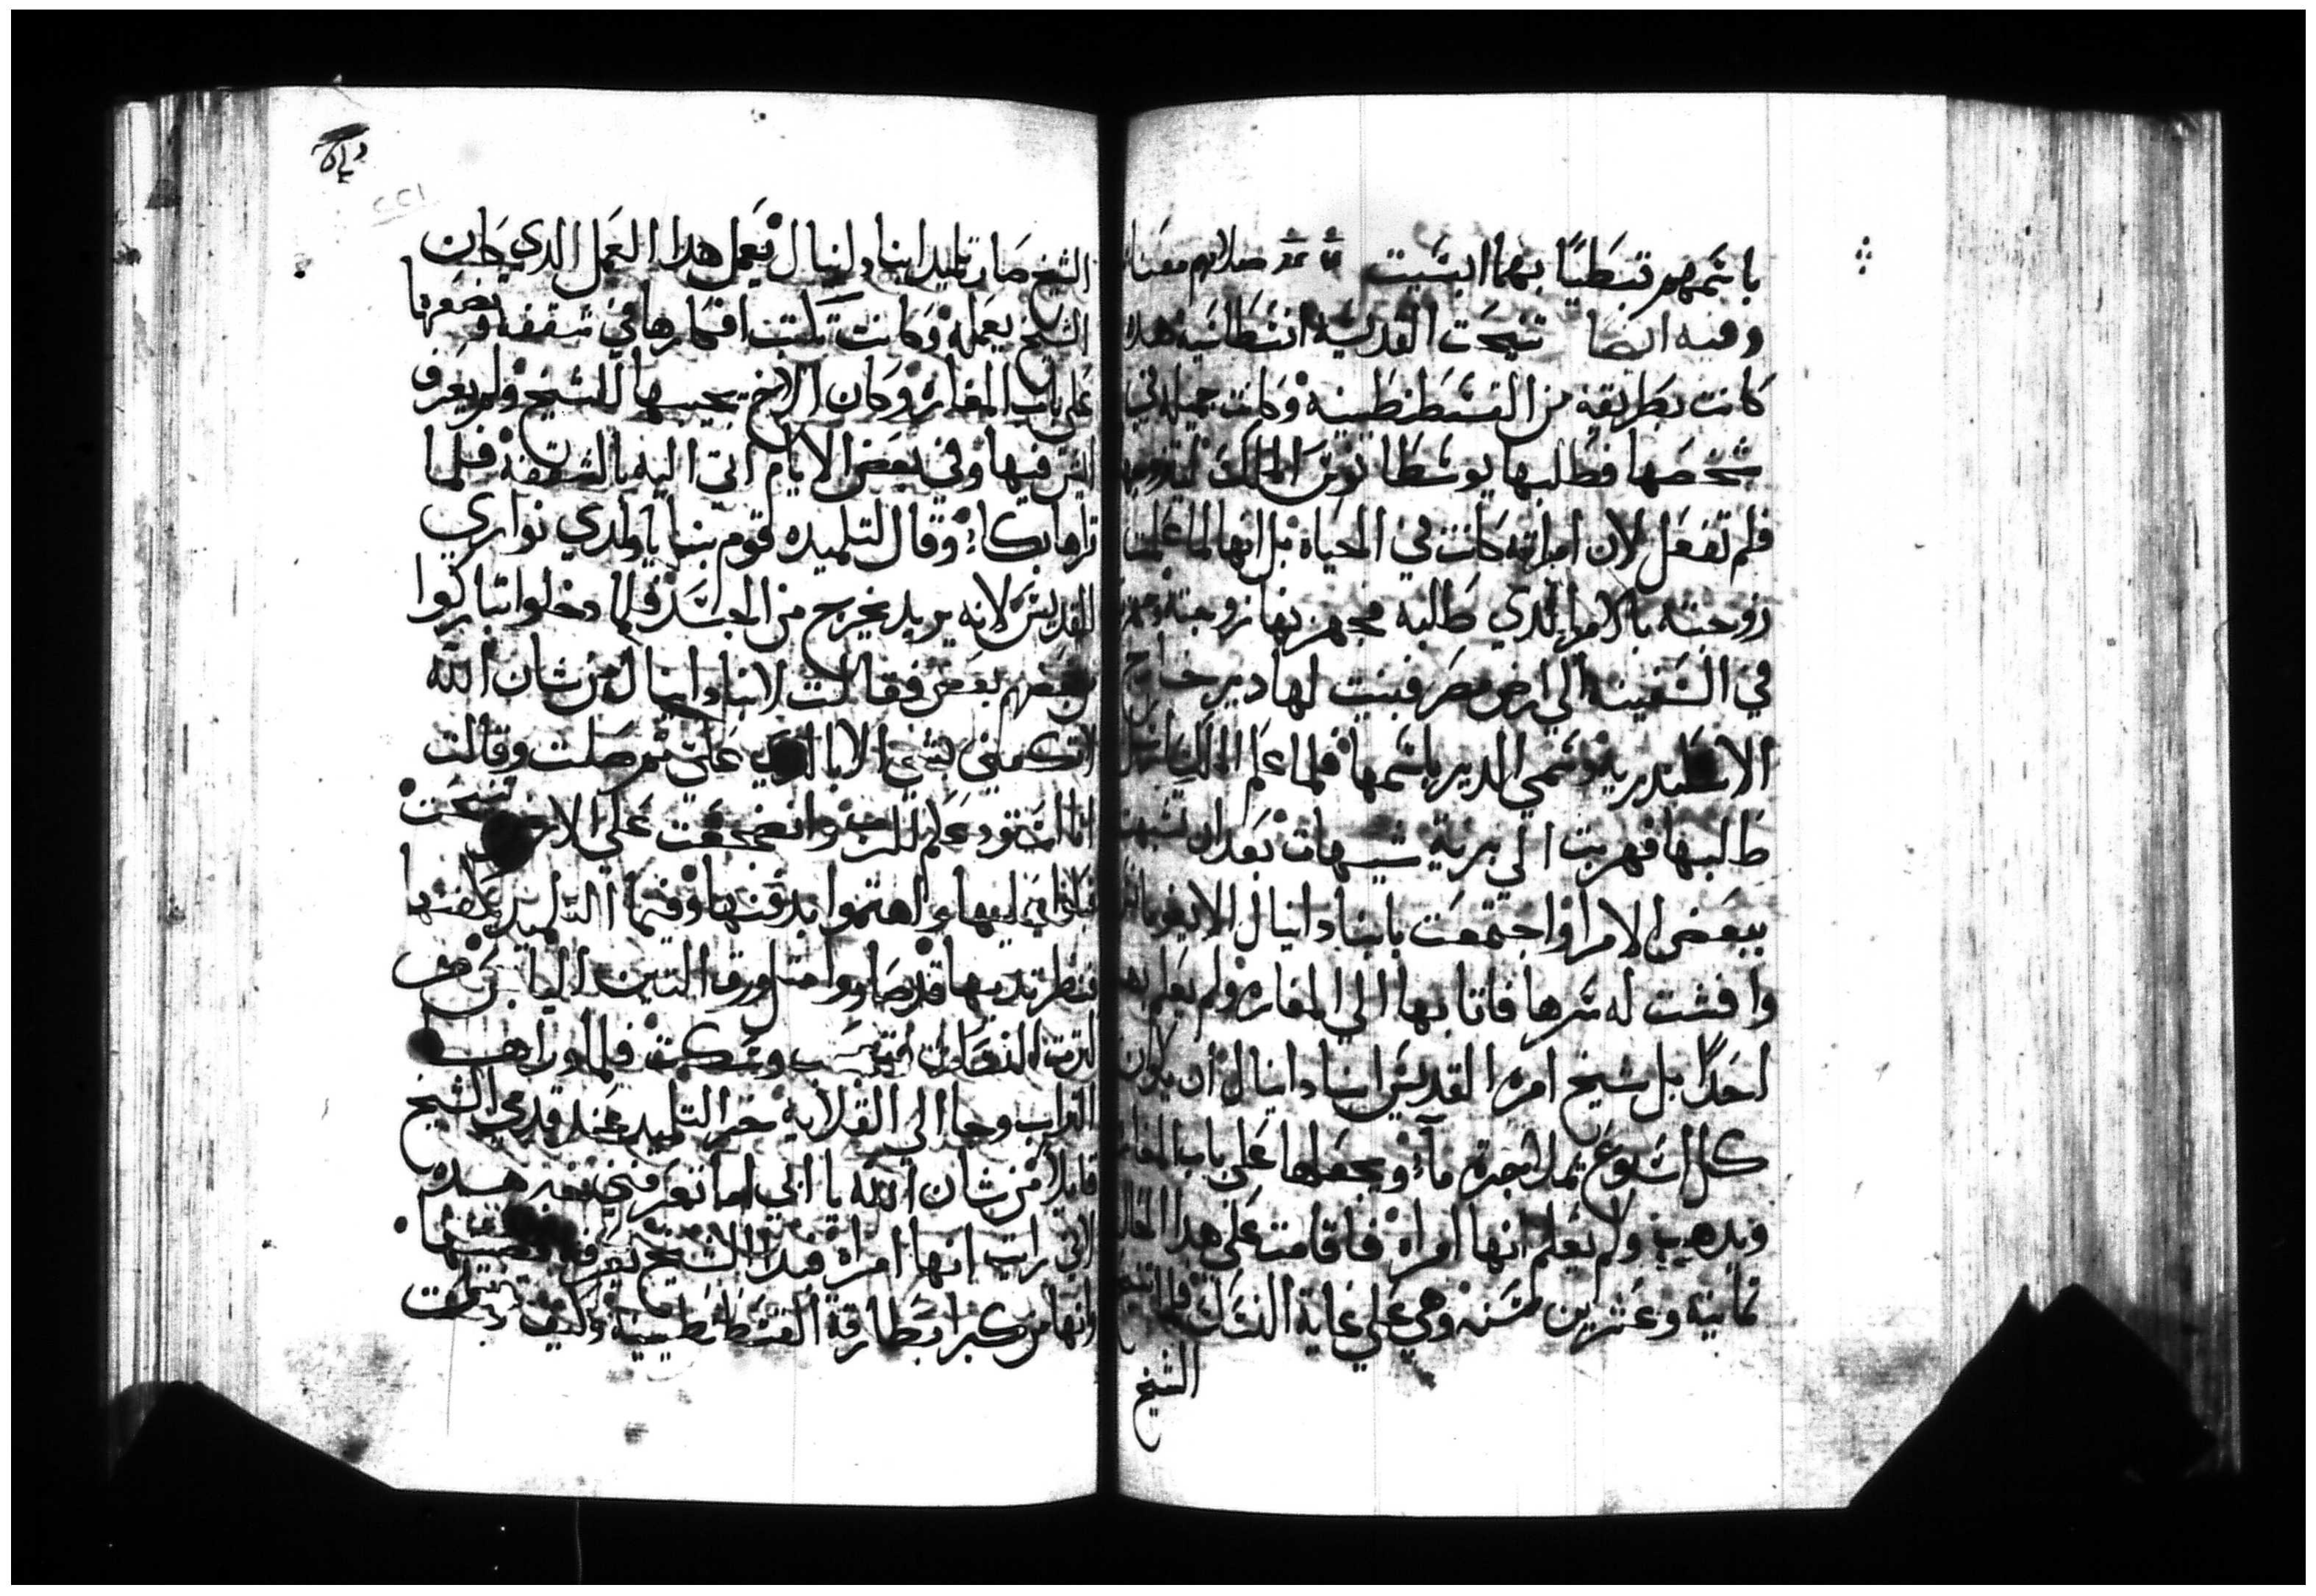 باسمهم قبطيا بهما ابسيت صلاتهم معنا
وفيه ايضا تنيحت القديسه انسطاسيه هده
كانت بطريقة من القسطنطينيه وكانت جميله في
شخصها فطلبها يوسطانوس الملك ليتزوجها
فلم تفعل لان امراته كانت في الحياه بل انها لما علمت
زوجته بالامر الدي طلبه مجهزتها زوجته
في السفينه الي ارض مصر فبنت لها دير خارج
الاسكندريه وسمي الدير باسمها فلما علم الملك
طلبها فهربت الي برية شيهات بعد ان تشبهت
ببعض الامرا واجتمعت بانبا دانيال الايغومانس
وافشت له سرها فاتا بها الي المغاره ولم يعلم بها
احدا بل شيخ امره القديس انبا دانيال ان يكون
كل اسبوع يملا جره مآء ويجعلها علي باب المغاره
ويدهب ولم يعلم انها امراه فاقامت علي هدا الحال
تمانيه وعشرين سنه وهي علي غاية النسك فلما تنيح
الشيخ
الشيخ صار تلميد انبا دانيال يعمل هدا العمل الدي كان
الشيخ يعمله وكانت تكتب افكارها في شقفه وتضعها
علي باب المغاره وكان الاخ يجيبها للشيخ ولم يعرف
ايش فيها وفي بعض الايام اتي اليه بالشقفه فلما
قراها بكاء وقال لتلميده قوم بنا يا ولدي نواري
القديس لانه يريد يخرج من الجسد فلما دخلوا تباركوا
من بعضهم بعض فقالت لانبا دانيال من شان الله
لا تكفني بشي الا بالدي علي تم صلت وقالت
انا استودعكم للرب وانضجعت علي الارض وتنيحت
فبكوا عليها واهتموا بدفنها وفيما التلميد يكفنها
فنظر تدييها قد صاروا متل ورقة التين اليابس من
كترت النسك فتعجب وسكت فلما وراها
التراب وجا الي القلايه خر التلميد عند قدمي الشيخ
قايلا من شان الله يا ابي اما تعرفني خبر هده
اني رايت انها امراه فبدا الشيخ يعرفه قصتها
وانها من كبرا بطارقة القسطنطينيه وكيف